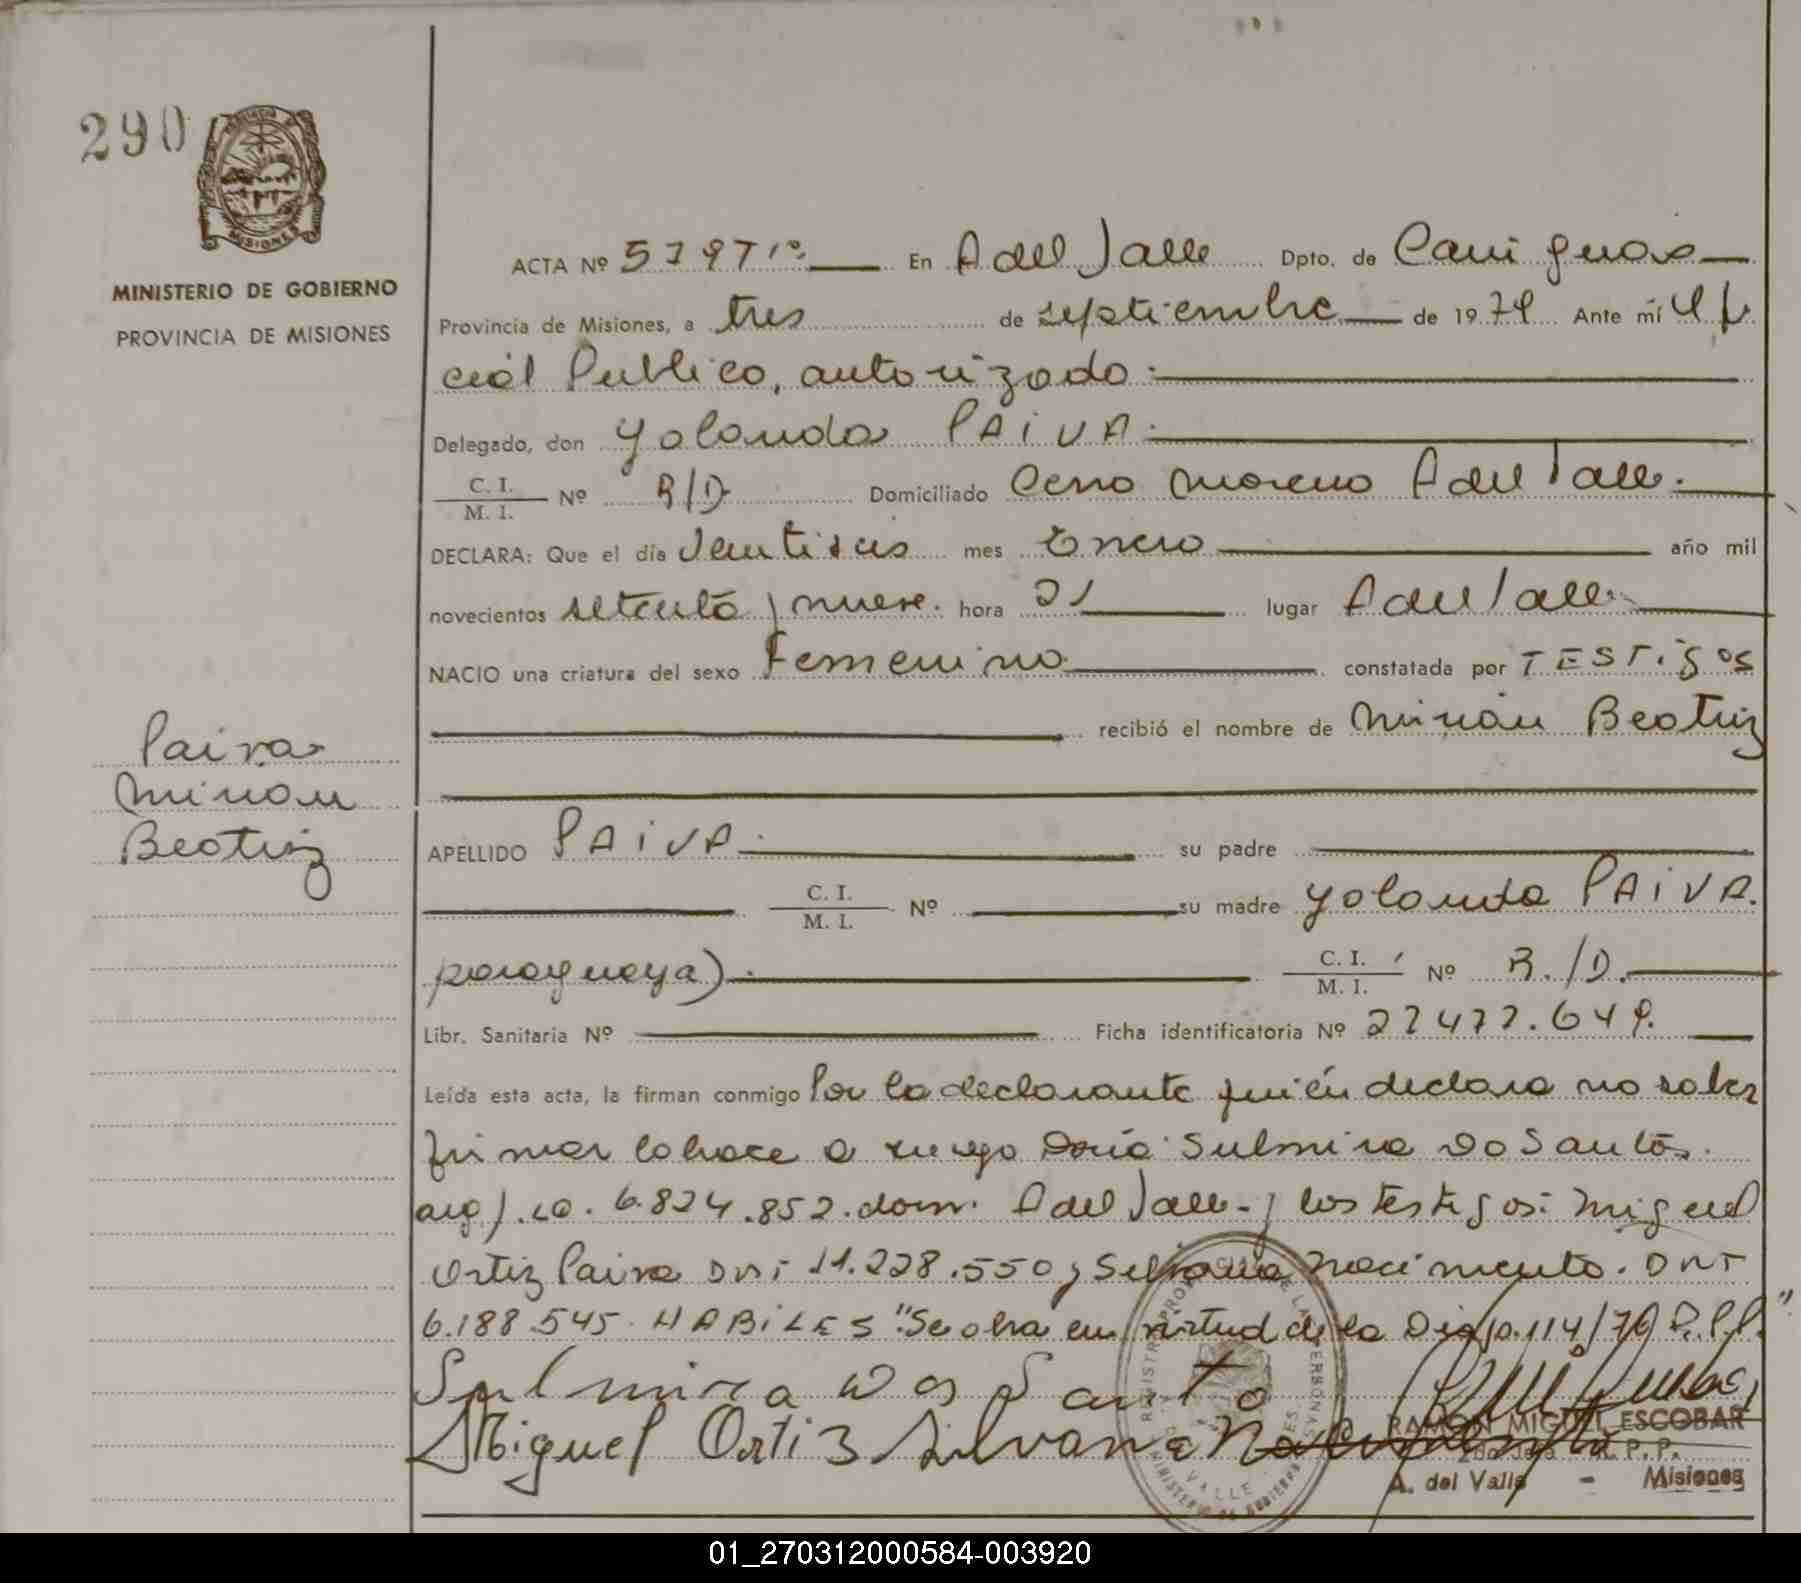 290
MINISTERIO DE GOBIERNO
PROVINCIA DE MISIONES
ACTA Nº 579 T1º. En A del Valle Dpto. de Cainguas
Provincia de Misiones, a tres de septiembre de 1979 Ante mí Ofi
cial Publico, autorizado
Delegado, don Yolanda PAIVA.
C. I. / M. I. Nº R/D Domiciliado Cerro Moreno A del Valle.
DECLARA: Que el día Ventiseis mes Enero año mil
novecientos setenta y nueve. hora 21 lugar A del Valle
NACIO una criatura del sexo Femenino constatada por TESTigos
recibió el nombre de Mirian Beatriz
Paiva
Mirian
Beatriz
APELLIDO PAIVA. su padre
C. I. / M. I. Nº su madre Yolanda PAIVA.
paraguaya) C. I. / M. I. Nº R./D.
Libr. Sanitaria Nº Ficha identificatoria Nº 27477.649.
Leída esta acta, la firman conmigo Por la declarante quién declara no saber
firmar lo hace a ruego Doña Sulmira Do Santos.
arg). 6.824.852. dom. A del Valle- y los testigos: Miguel
Ortiz Paiva DNI 11.228.550 y Silvana Nacimiento. DNI
6.188.545. HABiLES "Se obra en virtud de la Disp. 114/79 D.P.P."
Sulmira Dos Santo
Miguel Ortiz Silvana
RAMON MIGUEL ESCOBAR
P. P.
A. del Valle - Misiones
01_270312000584-003920